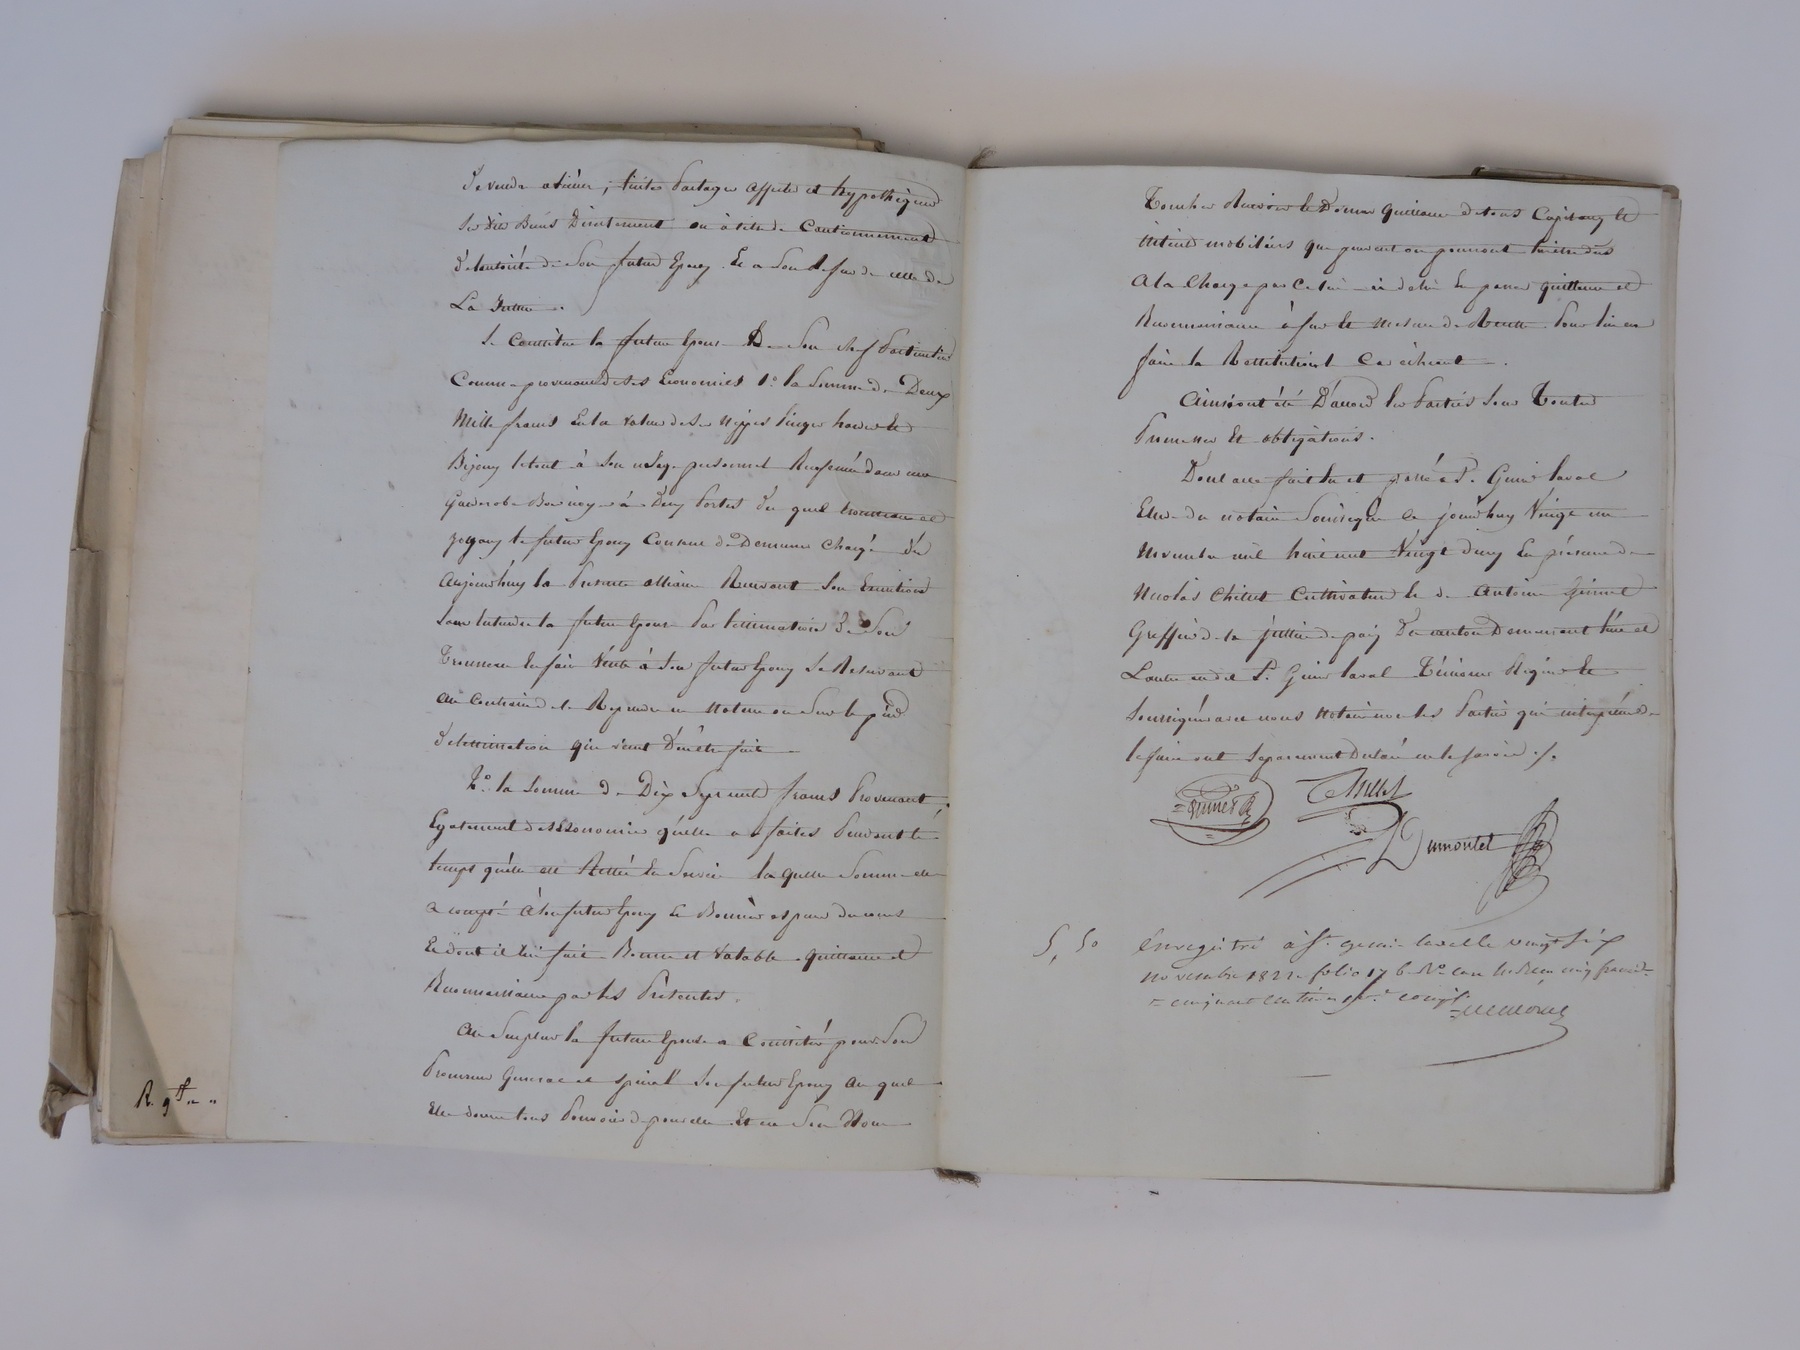 De vendre aliéner, traiter Partager affecter et hypothéquer
Ses dits Biens Directement ou à titre de Cautionnement
De l'autorité de son futur Epoux. Et a son defaut de celle de
La Justice.
Se Constitue la future Epouse De son chef Particulier
Comme provenant de ses Economies 1° la Somme de Deux
Mille francs En la valeur de ses Nippes linges hardes et
Bijoux le tout à son usage personnel Renfermé dans une
Garderobe Bois noyer à Deux Portes Du quel trousseau et
joyaux le futur Epoux Consent de Demeurer Chargé Dès
Aujourd'huy la Presente alliance Recevant son Execution
Sans entendre la future Epouse Par l'estimation De Son
Trousseau En faire Vente à Son futur Epoux Se Reservant
Au Contraire de le Reprendre en Nature ou Sur le pied
De l'estimation qui vient D'en être faite
2° la Somme De Dix Sept cents francs Provenant
Egalement des Economies qu'elle a faites Pendant le
temps qu'elle est Restée En Service la quelle Somme elle
a compté à Son futur Epoux En Bonnes espèces de cours
Et dont il lui fait Bonne et Valable quittance et
Reconnaissance par les Présentes.
Au Surplus la future Epouse a Constitué pour Son
Procureur General et Special Son futur Epoux Au quel
Elle donne tous Pouvoirs De pour elle Et en Son Nom
R. 9
Toucher Recevoir Et Donner quittance de tous Capitaux Et
Effets mobiliers que peuvent ou pourront lui être dus
A la Charge par Celui-ci de lui En passer quittance et
Reconnaissance à fur Et Mesure de Recette Pour lui en
faire la Restitution le Cas échéant.
Ainsi ont été D'accord les Parties Sous Toutes
Promesses Et obligations.
Dont acte fait lu et passé à St. Genis laval
Etude du notaire Soussigné Ce jourd'huy Vingt un
Novembre mil huit cent Vingt deux En présence de
Nicolas Chillet Cultivateur Et de Antoine Grimet
Greffier de la justice de paix Du canton Demeurant l'un et
L'autre audit St. Genis laval Témoins Requis Et
Soussignés avec nous Notaire non les Parties qui interpellées de
le faire ont Separement Declaré ne le savoir ./.
Chillet
Dumontet
5, 50 Enregistré à St. genis lavalle vingt six
novembre 1822 folio 17
cinquante centimes